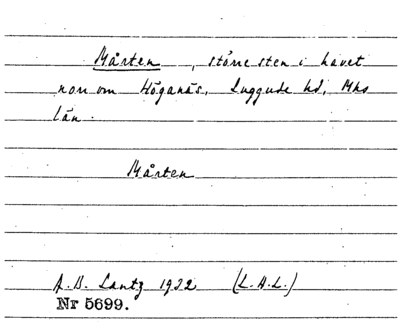 Mårten, större sten i havet
norr om Höganäs, Luggude hd, Mhs
län.
Mårten
A.B. Lantz 1932 (L.A.L.)
Nr 5699.